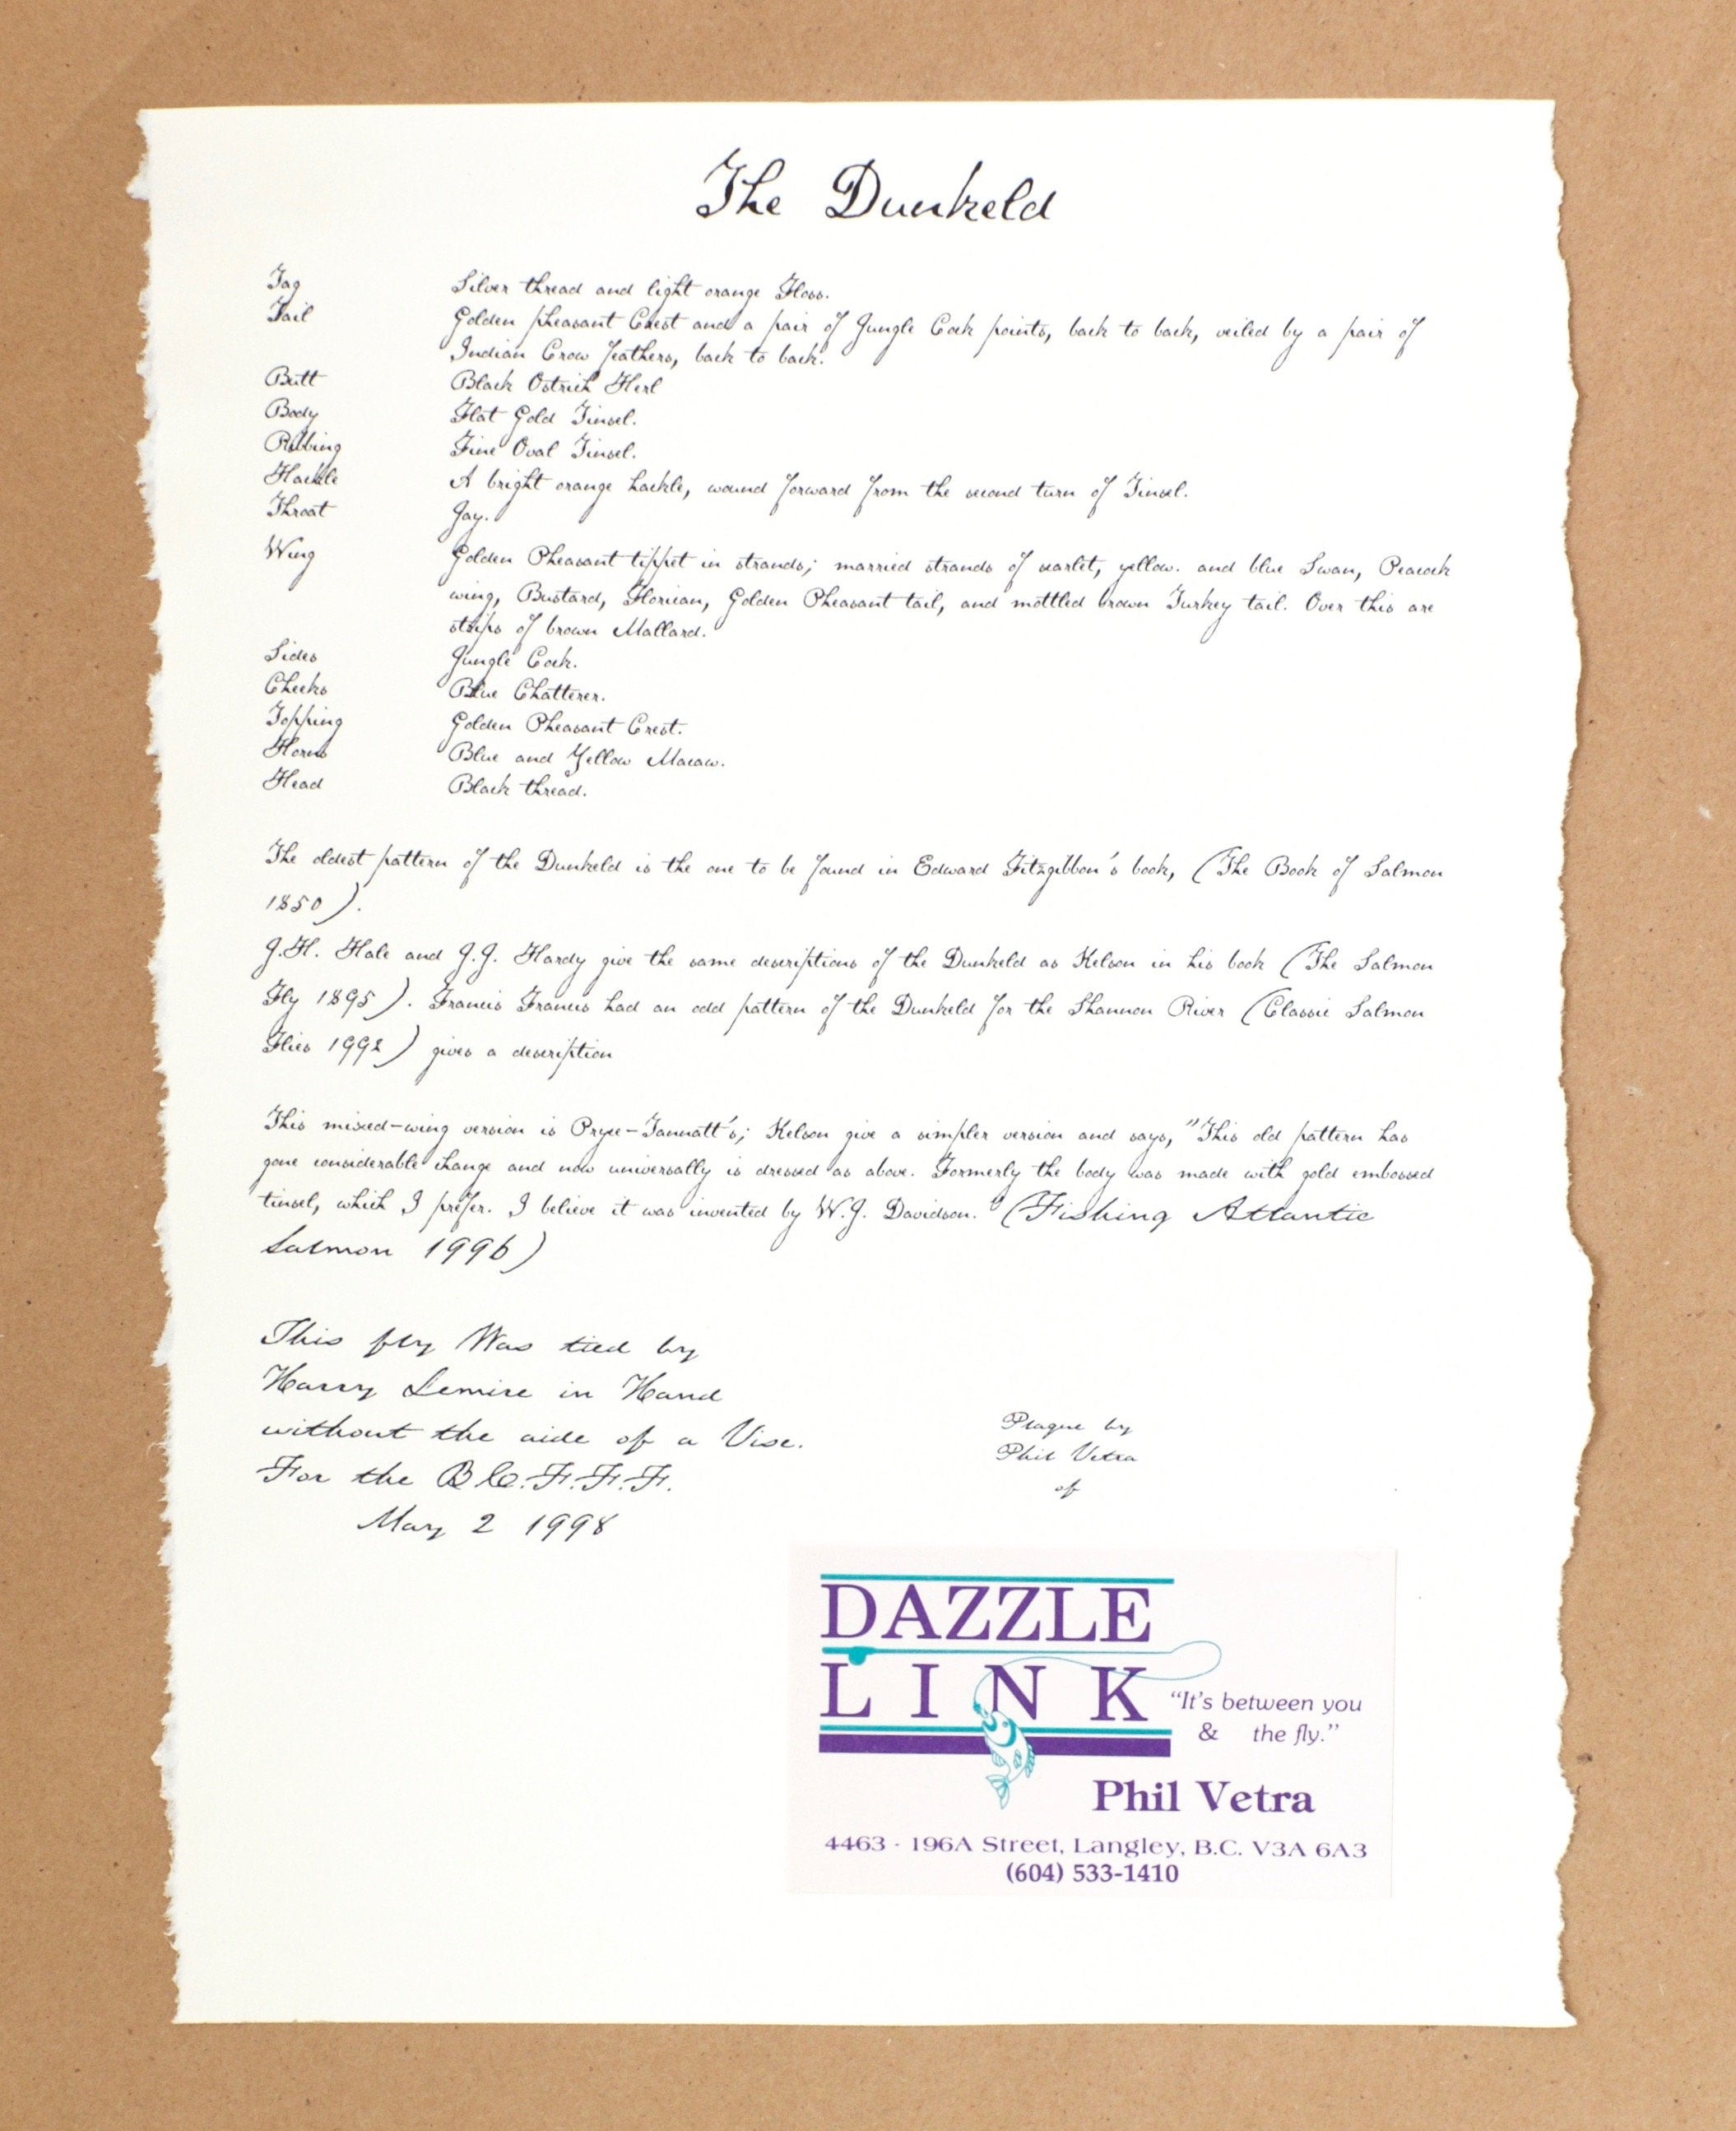 The Dunkeld
Tag Silver thread and light orange Floss.
Tail Golden pheasant Crest and a pair of Jungle Cock points, back to back, veiled by a pair of
Indian Crow feathers, back to back.
Butt Black Ostrich Herl
Body Flat Gold Tinsel.
Ribbing Fine Oval Tinsel.
Hackle A bright orange hackle, wound forward from the second turn of Tinsel.
Throat Jay.
Wing Golden Pheasant tippet in strands; married strands of scarlet, yellow. and blue Swan, Peacock
wing, Bustard, Florican, Golden Pheasant tail, and mottled brown Turkey tail. Over this are
strips of brown Mallard.
Sides Jungle Cock.
Cheeks Blue Chatterer.
Topping Golden Pheasant Crest.
Horns Blue and Yellow Macaw.
Head Black thread.
The oldest pattern of the Dunkeld is the one to be found in Edward Fitzgibbon's book, (The Book of Salmon
1850).
J.H. Hale and J.J. Hardy give the same descriptions of the Dunkeld as Kelson in his book (The Salmon
Fly 1895). Francis Francis had an odd pattern of the Dunkeld for the Shannon River (Classic Salmon
Flies 1992) gives a description
This mixed-wing version is Pryce-Tannatt's; Kelson give a simpler version and says, "This old pattern has
gone considerable change and now universally is dressed as above. Formerly the body was made with gold embossed
tinsel, which I prefer. I believe it was invented by W.J. Davidson." (Fishing Atlantic
Salmon 1996)
This fly Was tied by
Harry Lemire in Hand
without the aide of a Vise.
For the B.C.F.F.F.
May 2 1998
Plague by
Phil Vetra
of
DAZZLE
LINK
"It's between you
& the fly."
Phil Vetra
4463 - 196A Street, Langley, B.C. V3A 6A3
(604) 533-1410